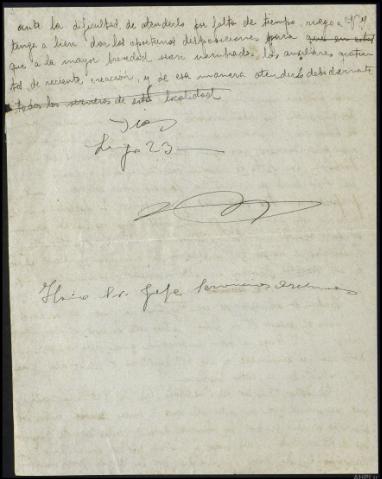 ante la dificultad de atenderlo por falta de tiempo, ruego a V. y
tenga a bien dar las oportunas disposiciones para que en esta
que a la mayor brevedad sean nombrados los auxiliares
de reciente creación, y de esa manera atender debidamente
todos los servicios de esta localidad
23
Ilmo Sr. Jefe Servicios